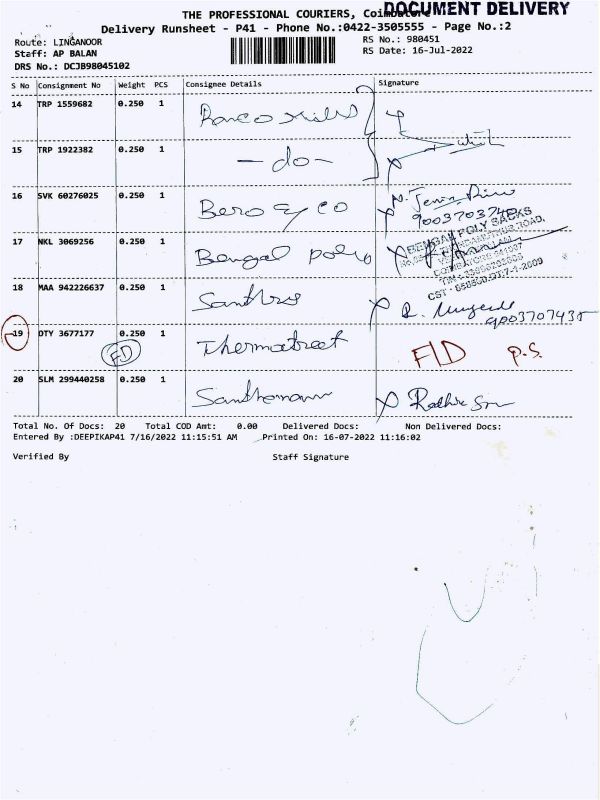 DOCUMENT DELIVERY
THE PROFESSIONAL COURIERS, Coimbatore
Delivery Runsheet - P41 - Phone No.:0422-3505555 - Page No.:2
Route: LINGANOOR
RS No.: 980451
Staff: AP BALAN
RS Date: 16-Jul-2022
DRS No.: DCJB98045102
S No Consignment No Weight PCS Consignee Details Signature
14 TRP 1559682 0.250 1
15 TRP 1922382 0.250 1 - do -
16 SVK 60276025 0.250 1 Bero & co
17 NKL 3069256 0.250 1 Bengal poly
BENGAL POLY SACKS
18 MAA 942226637 0.250 1
9003707435
19 DTY 3677177 0.250 1 Thermatreet F/D P.S.
FD
20 SLM 299440258 0.250 1
Total No. Of Docs: 20 Total COD Amt: 0.00 Delivered Docs: Non Delivered Docs:
Entered By :DEEPIKAP41 7/16/2022 11:15:51 AM Printed On: 16-07-2022 11:16:02
Verified By Staff Signature